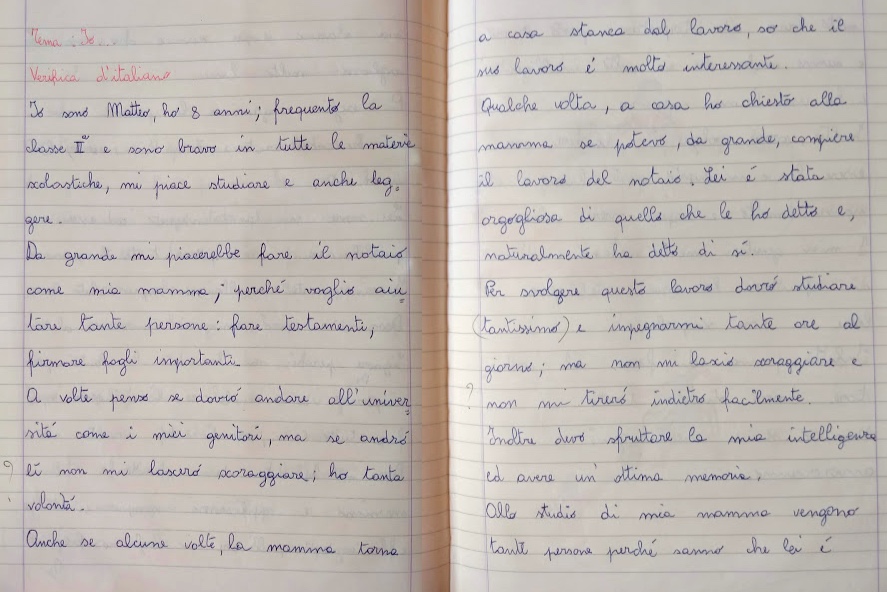 Tema: Io
Verifica d'italiano
Io sono Matteo, ho 8 anni; frequento la
classe IIª e sono bravo in tutte le materie
scolastiche, mi piace studiare e anche leg=
gere.
Da grande mi piacerebbe fare il notaio
come mia mamma; perché voglio aiu
tare tante persone: fare testamenti,
firmare fogli importanti.
A volte penso se dovró andare all'univer
sitá come i miei genitori, ma se andró
lí non mi lasceró scoraggiare; ho tanta
volontá.
Anche se alcune volte, la mamma torna
a casa stanca dal lavoro, so che il
suo lavoro é molto interessante.
Qualche volta, a casa ho chiesto alla
mamma se potevo, da grande, compiere
il lavoro del notaio. Lei é stata
orgogliosa di quello che le ho detto e,
naturalmente ha detto di sí.
Per svolgere questo lavoro dovró studiare
(tantissimo) e impegnarmi tante ore al
giorno; ma non mi lascio scoraggiare e
? non mi tireró indietro facilmente.
Inoltre devo sfruttare la mia intelligenza
ed avere un'ottima memoria.
Allo studio di mia mamma vengono
tante persone perché sanno che lei é